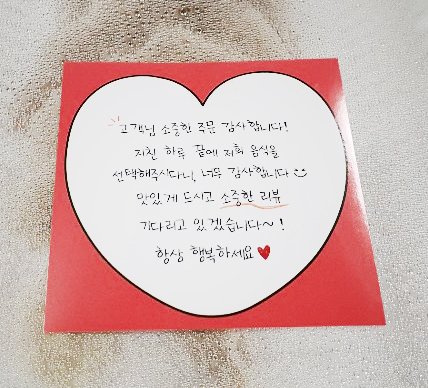 고객님 소중한 주문 감사합니다!
지친 하루 끝에 저희 음식을
선택해주시다니, 너무 감사합니다
맛있게 드시고 소중한 리뷰
기다리고 있겠습니다~!
항상 행복하세요